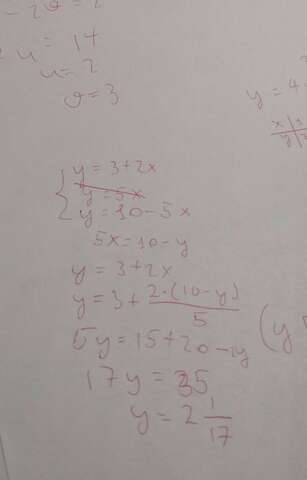 - 2v = 2
u = 14
u = 2
v = 3
y = 4
x | 3
y | 
y = 3 + 2x
y = 5x
y = 10 - 5x
5x = 10 - y
y = 3 + 2x
y = 3 + 2·(10 - y) / 5
5y = 15 + 20 - 1y
(y
17y = 35
y = 2 1/17